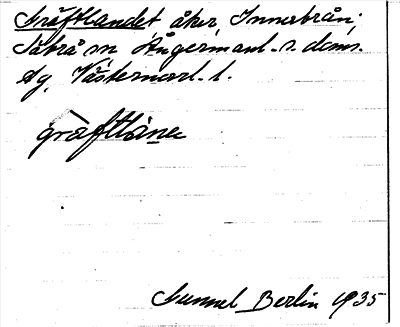 Gräftlandet, åker, Innerbrån,
Säbrå sn Ångermanl. s. doms.
dg, Västernorrl. l.
gräftlåne
Gunnel Berlin 1935